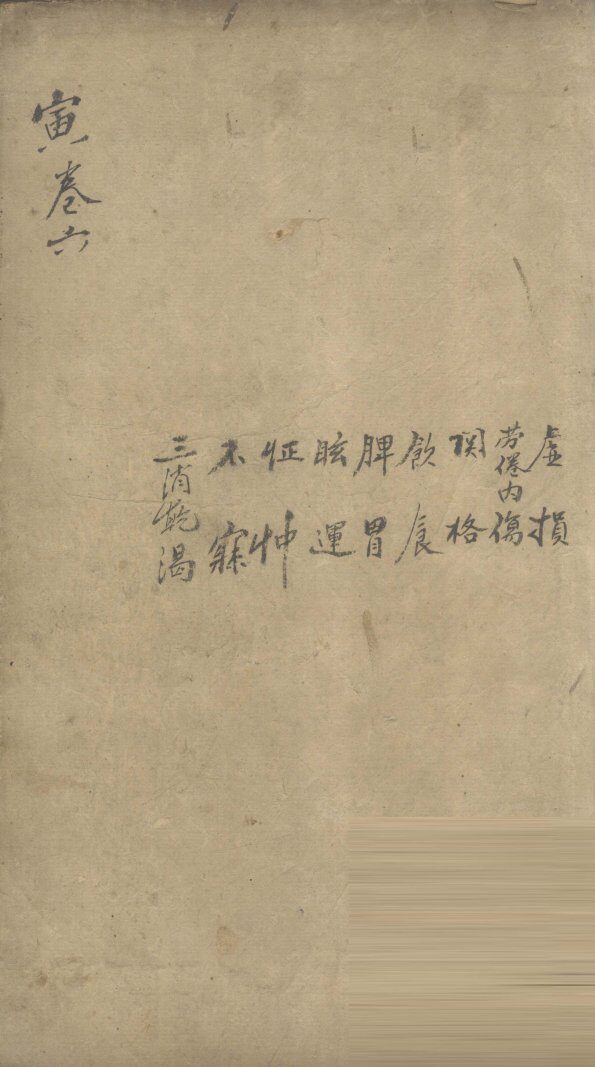 寅卷六
虛損
劳倦內傷
関格
飲食
脾胃
眩運
怔忡
不寐
三消乾渴